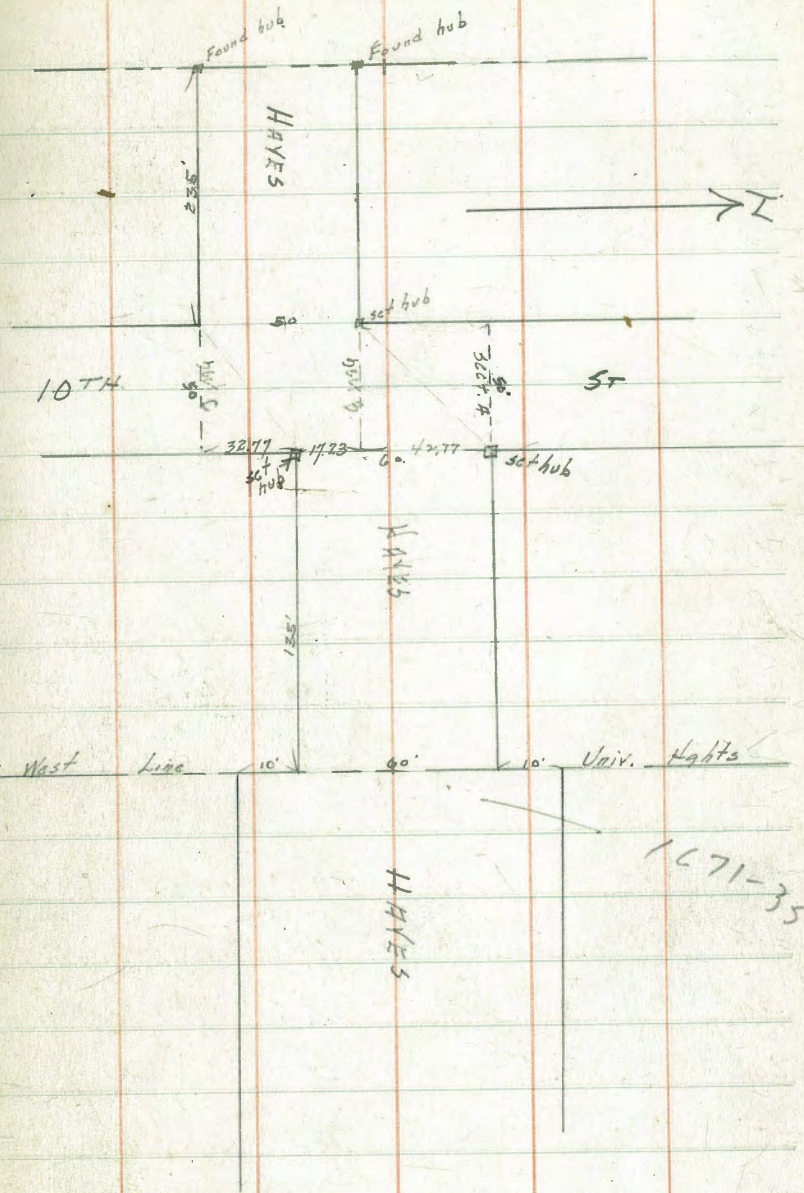 Found hub
Found hub
HAYES
235'
N
set hub
50
10TH
50
50'
ST
32.77
17.23
60
42.77
set hub
set hub
HAYES
135'
West Line
10'
60'
10'
Univ. Hghts
HAYES
1671-35